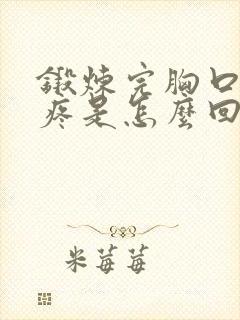 鍛煉完胸口
疼是怎麼回
米莓莓